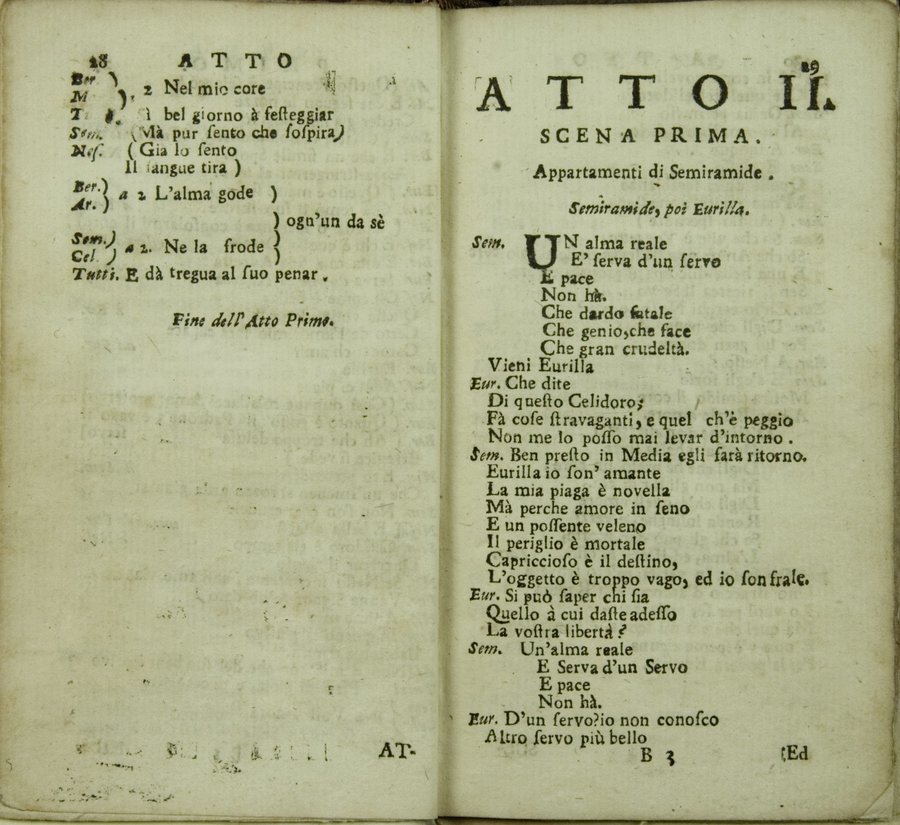 28 ATTO
Ber. )
M ) 2 Nel mio core
T bel giorno à feſteggiar
Sem. (Mà pur ſento che ſoſpira)
Neſ. (Gia lo ſento
Il ſangue tira )
Ber. )
Ar. ) a 2 L'alma gode )
) ogn'un da sè
Sem. )
Cel. ) a 2. Ne la frode )
Tutti. E dà tregua al ſuo penar.
Fine dell'Atto Primo.
AT-
29
ATTO II.
SCENA PRIMA.
Appartamenti di Semiramide.
Semiramide, poi Eurilla.
Sem. UN alma reale
E' ſerva d'un ſervo
E pace
Non hà.
Che dardo fatale
Che genio, che face
Che gran crudeltà.
Vieni Eurilla
Eur. Che dite
Di queſto Celidoro;
Fà coſe ſtravaganti, e quel ch'è peggio
Non me lo poſſo mai levar d'intorno.
Sem. Ben preſto in Media egli farà ritorno.
Eurilla io ſon' amante
La mia piaga è novella
Mà perche amore in ſeno
E un poſſente veleno
Il periglio è mortale
Capriccioſo è il deſtino,
L'oggetto è troppo vago, ed io ſon frale.
Eur. Si può ſaper chi ſia
Quello à cui daſte adeſſo
La voſtra libertà?
Sem. Un'alma reale
E Serva d'un Servo
E pace
Non hà.
Eur. D'un ſervo? io non conoſco
Altro ſervo più bello
B 3 Ed